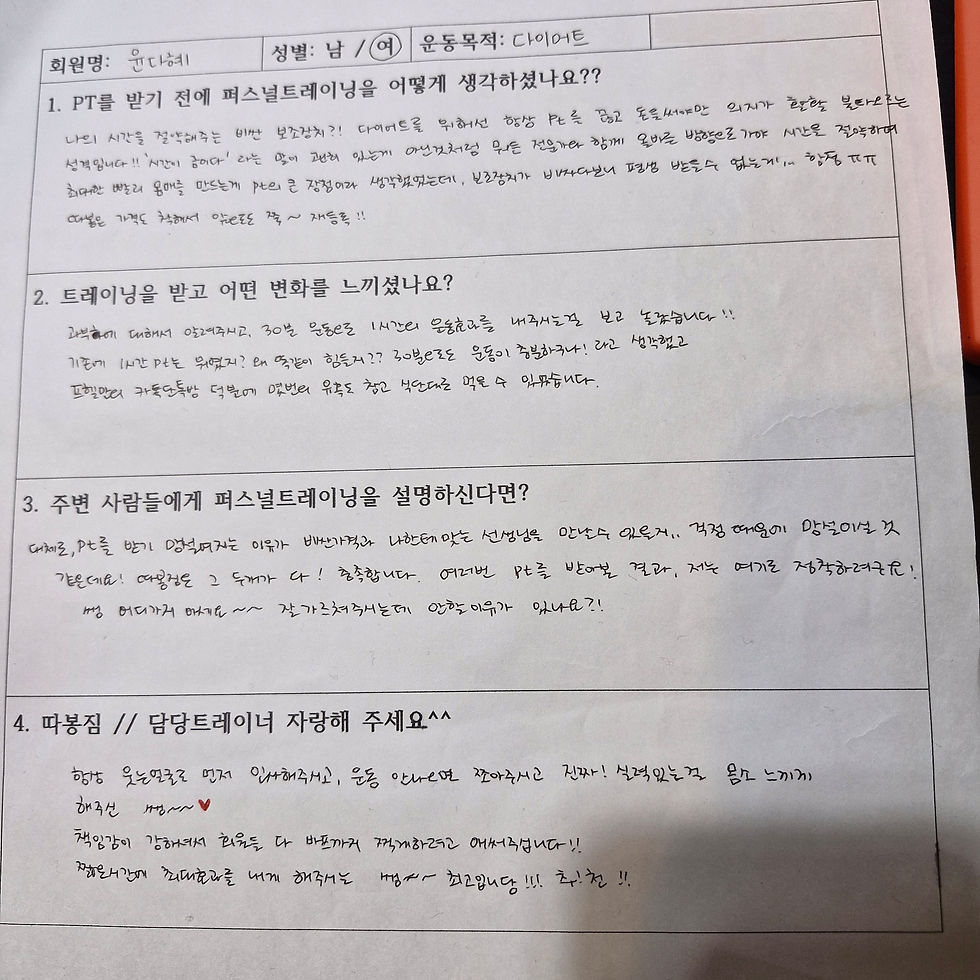 회원명: 윤다혜 성별: 남 / 여 운동목적: 다이어트
1. PT를 받기 전에 퍼스널트레이닝을 어떻게 생각하셨나요??
나의 시간을 절약해주는 비싼 보조장치?! 다이어트를 위해선 항상 Pt를 끊고 돈을써야만 의지가 활활 불타오르는
성격입니다!! '시간이 금이다' 라는 말이 괜히 있는게 아닌것처럼 뭐든 전문가와 함께 올바른 방향으로가야 시간을 절약하며
최대한 빨리 몸매를 만드는게 pt의 큰 장점이라 생각했었는데, 보조장치가 비싸다보니 평생 받을수 없는게... 함정 ㅠㅠ
따봉은 가격도 착해서 앞으로도 쭉~ 재등록!!
2. 트레이닝을 받고 어떤 변화를 느끼셨나요?
과부하에 대해서 알려주시고, 30분 운동으로 1시간의 운동효과를 내주시는걸 보고 놀랐습니다!!
기존에 1시간 pt는 뭐였지? 왜 똑같이 힘들지?? 30분으로도 운동이 충분하구나! 라고 생각했고
프헬만의 카톡단톡방 덕분에 몇번의 유혹도 참고 식단대로 먹을 수 있었습니다.
3. 주변 사람들에게 퍼스널트레이닝을 설명하신다면?
대체로, Pt를 받기 망설여지는 이유가 비싼가격과 나한테 맞는 선생님을 만날수 있을지.. 걱정 때문에 망설이실 것
같은데요! 따봉짐은 그 두개가 다! 충족합니다. 여러번 pt를 받아본 결과, 저는 여기로 정착하려구요!
쌤 어디가지 마세요~~ 잘가르쳐주시는데 안할이유가 있나요?!
4. 따봉짐 // 담당트레이너 자랑해 주세요^^
항상 웃는얼굴로 먼저 인사해주시고, 운동 안나오면 쪼아주시고 진짜! 실력있는걸 몸소 느끼게
해주신 쌤~~♥
책임감이 강하셔서 회원들 다 바프까지 찍게하려고 애써주십니다!!
짧은시간에 최대효과를 내게 해주시는 쌤~~ 최고입니당!!! 추!천!!